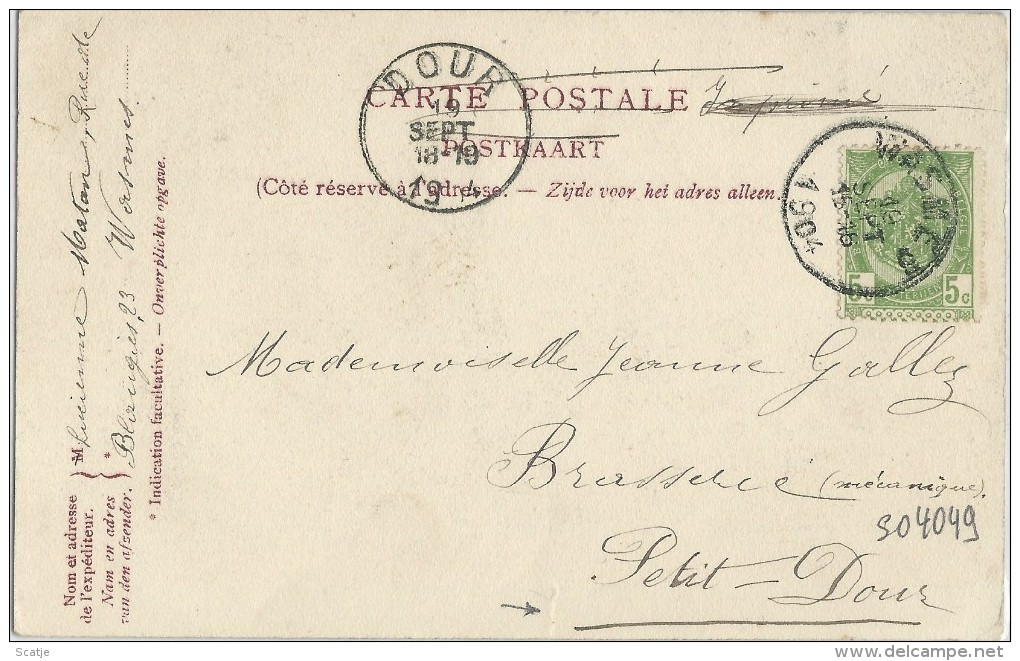 DOUR
19
SEPT
18-19
19 4
CARTE POSTALE Imprimé
POSTKAART
(Côté réservé à l'adresse. — Zijde voor het adres alleen.
WASMES
19
SEPT
15-16
1904
5c 5c
Mademoiselle Jeanne Gallez
Brasserie (mécanique).
304049
Petit-Dour
Nom et adresse
de l'expéditeur.
Nam en adres
van den afsender.
M Lucienne Maton, Rue de
* Blaugies, 23 Wasmes
* Indication facultative. — Onverplichte opgave.
Scatje
delcampe.net